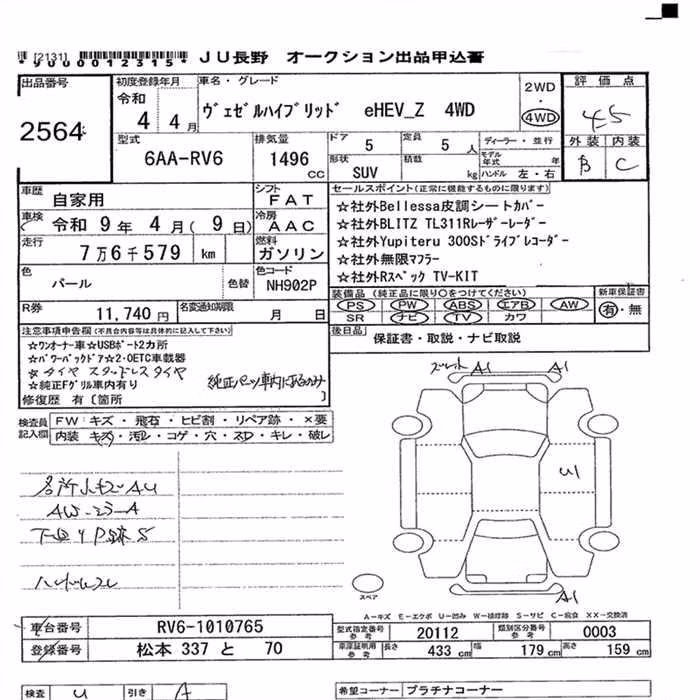 [2131]
*9000012315*
JU長野 オークション出品申込書
出品番号
2564
初度登録年月
令和
4 4月
車名・グレード
ヴェゼルハイブリッド eHEV_Z 4WD
2WD
・
4WD
評価点
4.5
外装 内装
B C
型式
6AA-RV6
排気量
1496
CC
ドア
5
定員
5 人
形状
SUV
積載
kg
ディーラー・並行
モデル年式 年
ハンドル 左・右
車歴
自家用
シフト
FAT
車検
令和 9年 4月 (9日)
冷房
AAC
走行
7万6千579 km
燃料
ガソリン
色
パール
色替
色コード
NH902P
R券
11,740円
名変通知期限
月 日
セールスポイント(正常に機能するものに限ります)
☆社外Bellessa皮調シートカバー
☆社外BLITZ TL311Rレーザーレーダー
☆社外Yupiteru 300Sドライブレコーダー
☆社外無限マフラー
☆社外Rスペック TV-KIT
装備品(純正品に限り○をつけてください)
PS PW ABS エアB AW
SR ナビ TV カワ
新車保証書
有・無
後日品
保証書・取説・ナビ取説
注意事項申告欄(不具合内容等は具体的に記入して下さい)
☆ワンオーナー車☆USBポート2カ所
☆パワーバックドア☆2.0ETC車載器
☆タイヤ スタッドレスタイヤ
☆純正Fグリル車内有り
純正パーツ車内にあるのみ
修復歴 有〔箇所 〕
検査員記入欄
FW キズ・飛石・ヒビ割・リペア跡・×要
内装 キズ・汚レ・コゲ・穴・スレ・キレ・破レ
AW
A1
A1
U1
A1
スペア
A-キズ E-エクボ U-凹み W-補修跡 S-サビ C-腐食 XX-交換済
車台番号
RV6-1010765
登録番号
松本 337 と 70
型式指定番号
参考
20112
類別区分番号
参考
0003
車庫証明用
参考
長さ 433 cm
幅 179 cm
高さ 159 cm
検査
引き
希望コーナー
プラチナコーナー